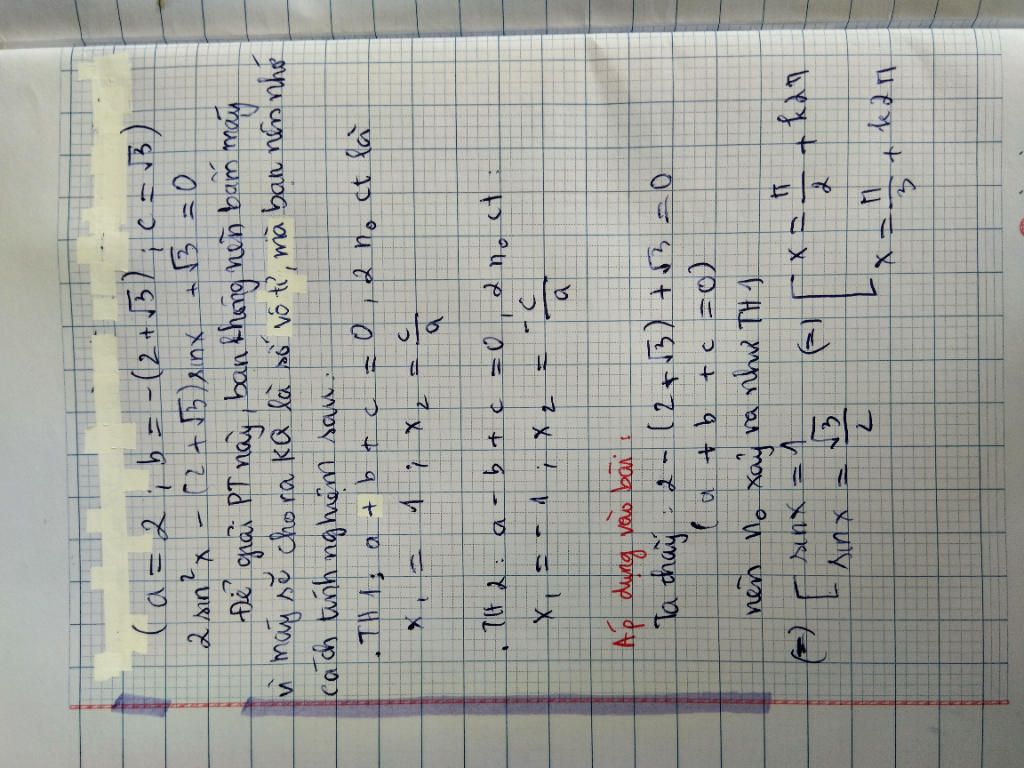 ( a = 2 ; b = -(2 + √3) ; c = √3 )
2 sin²x - (2 + √3) sinx + √3 = 0
Để giải PT này, bạn không nên bấm máy
vì máy sẽ cho ra KQ là số vô tỉ, mà bạn nên nhớ
cách tính nghiệm sau:
. TH1: a + b + c = 0, 2 n₀ ct là
x₁ = 1 ; x₂ = c/a
. TH2: a - b + c = 0, 2 n₀ ct :
x₁ = -1 ; x₂ = -c/a
Áp dụng vào bài:
Ta thấy: 2 - (2 + √3) + √3 = 0
(a + b + c = 0)
nên n₀ xảy ra như TH1
(=) [ sinx = 1 (=) [ x = π/2 + k2π
sinx = √3/2 x = π/3 + k2π